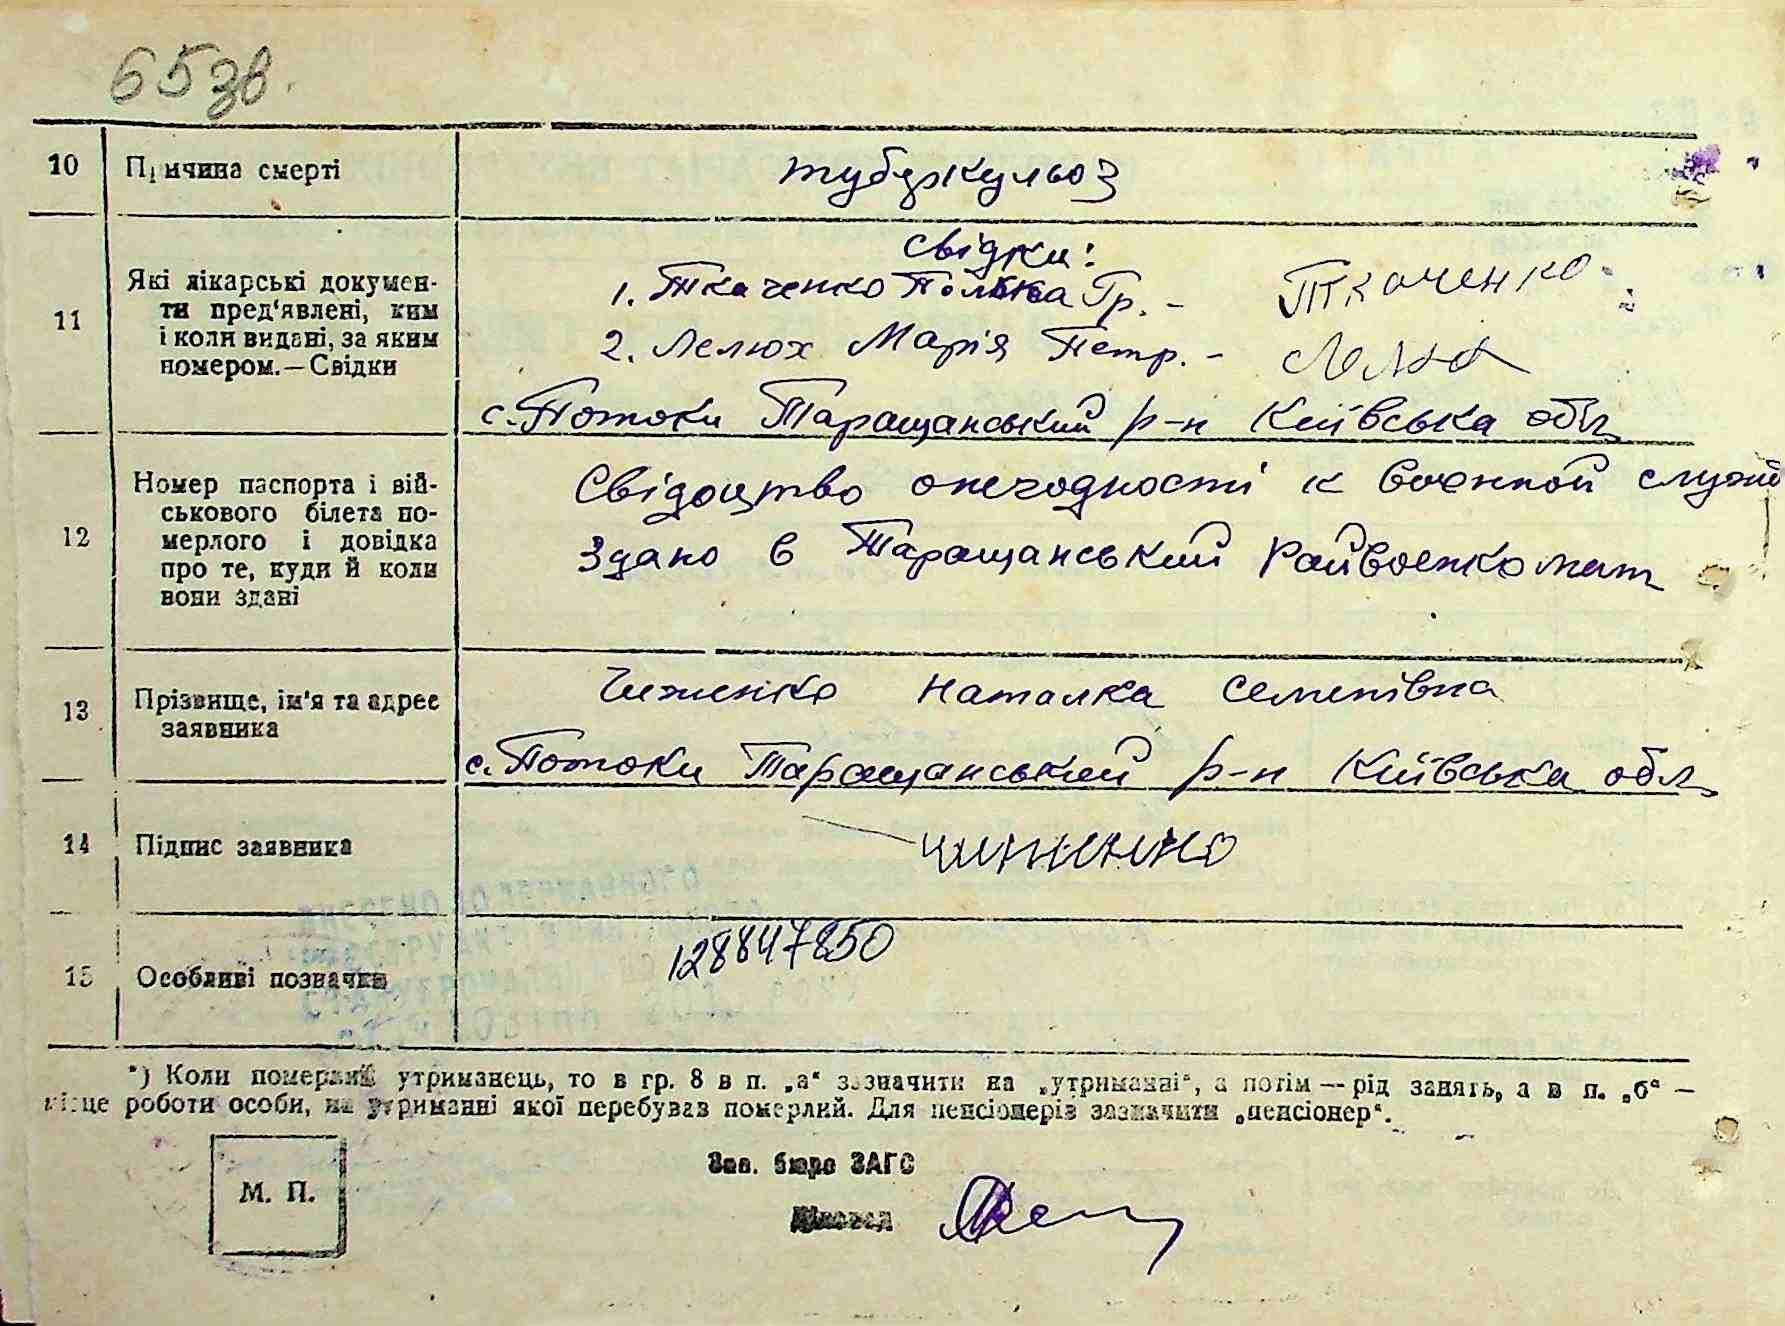 65зв.
10 Причина смерті туберкульоз
11 Які лікарські докумен-
ти пред'явлені, ким
і коли видані, за яким
номером.—Свідки
Свідки:
1. Ткаченко Полька Гр. - Ткаченко
2. Лелюх Марія Петр. -
с. Потоки Таращанський р-н Київська обл
12 Номер паспорта і вій-
ськового білета по-
мерлого і довідка
про те, куди й коли
вони здані
Свідоцтво онегодності к военной служб
Здано в Таращанський Райвоенкомат
13 Прізвище, ім'я та адрес
заявника
Чиженко Наталка Семенівна
с. Потоки Таращанський р-н Київська обл
14 Підпис заявника
15 Особливі позначки 128847850
*) Коли померлий утриманець, то в гр. 8 в п. „а“ зазначити на „утриманні“, а потім — рід занять, а в п. „б“ —
місце роботи особи, на утриманні якої перебував померлий. Для пенсіонерів зазначити „пенсіонер“.
М. П.
Зав. бюро ЗАГС
Діловод